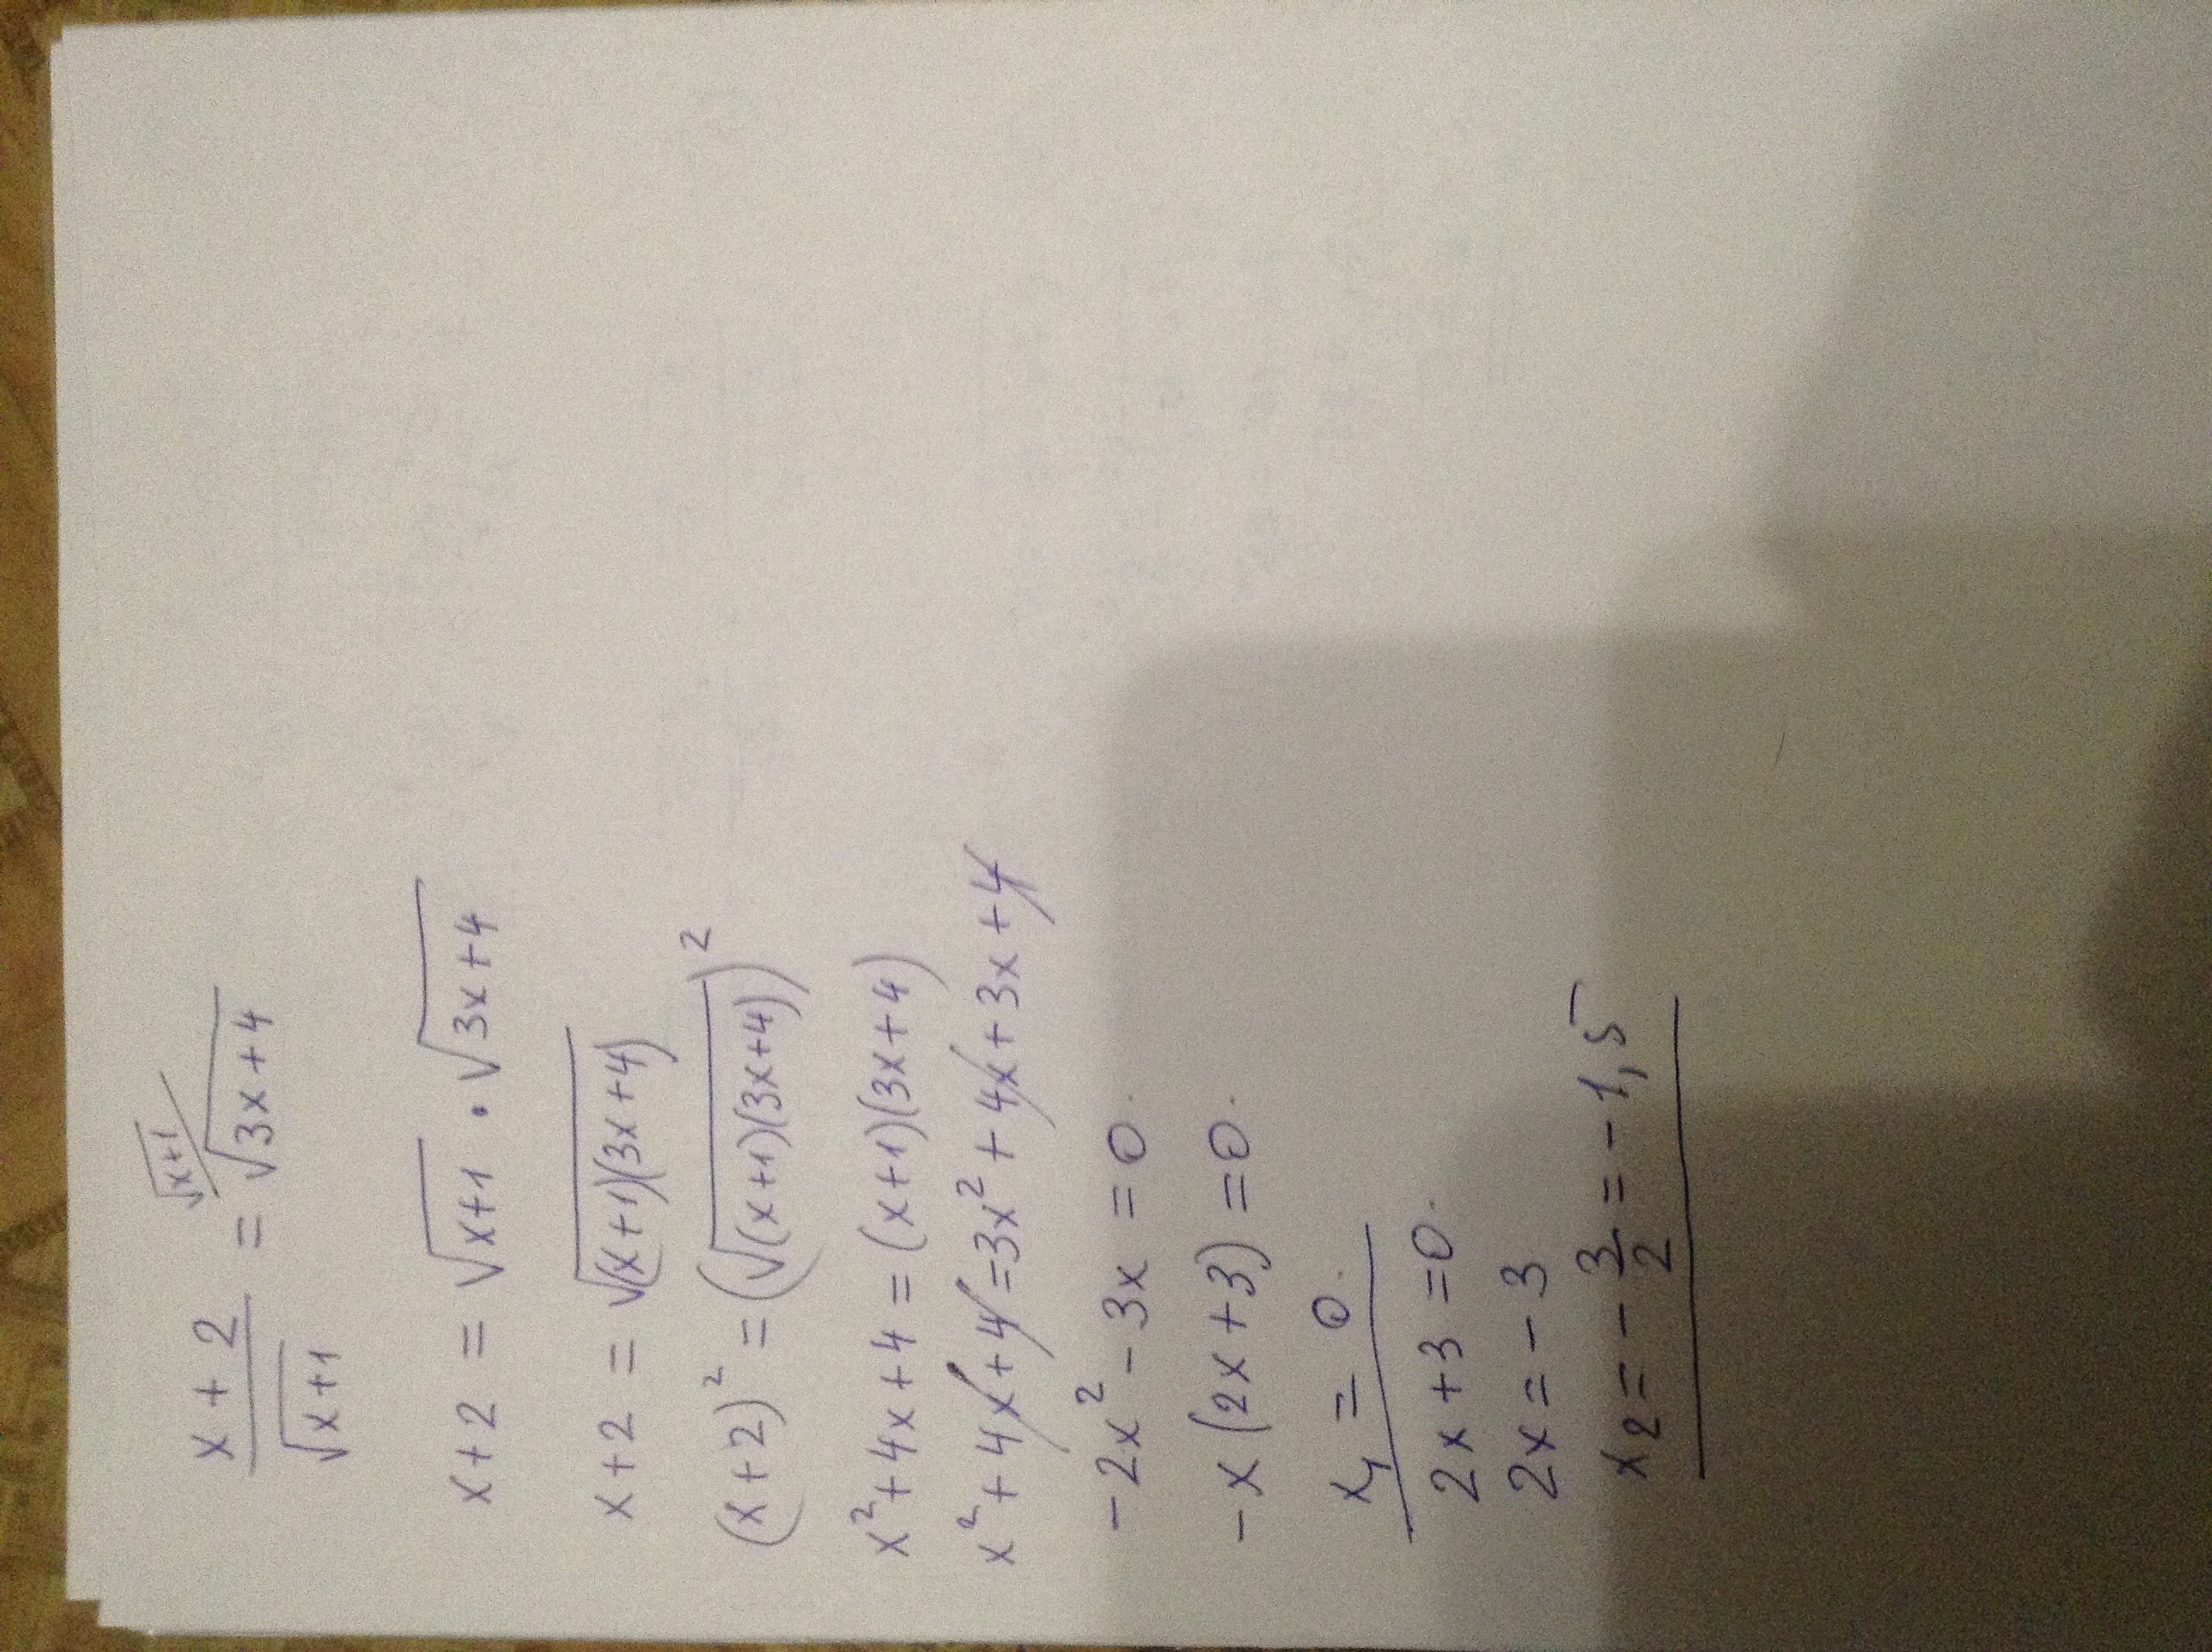 (x + 2)/√(x+1) = √(3x+4) √(x+1)/
x+2 = √(x+1) · √(3x+4)
x+2 = √((x+1)(3x+4))
(x+2)² = (√((x+1)(3x+4)))²
x²+4x+4 = (x+1)(3x+4)
x²+4x+4=3x²+4x+3x+4
-2x²-3x=0.
-x(2x+3)=0.
x₁=0.
2x+3=0.
2x=-3
x₂=-3/2=-1,5